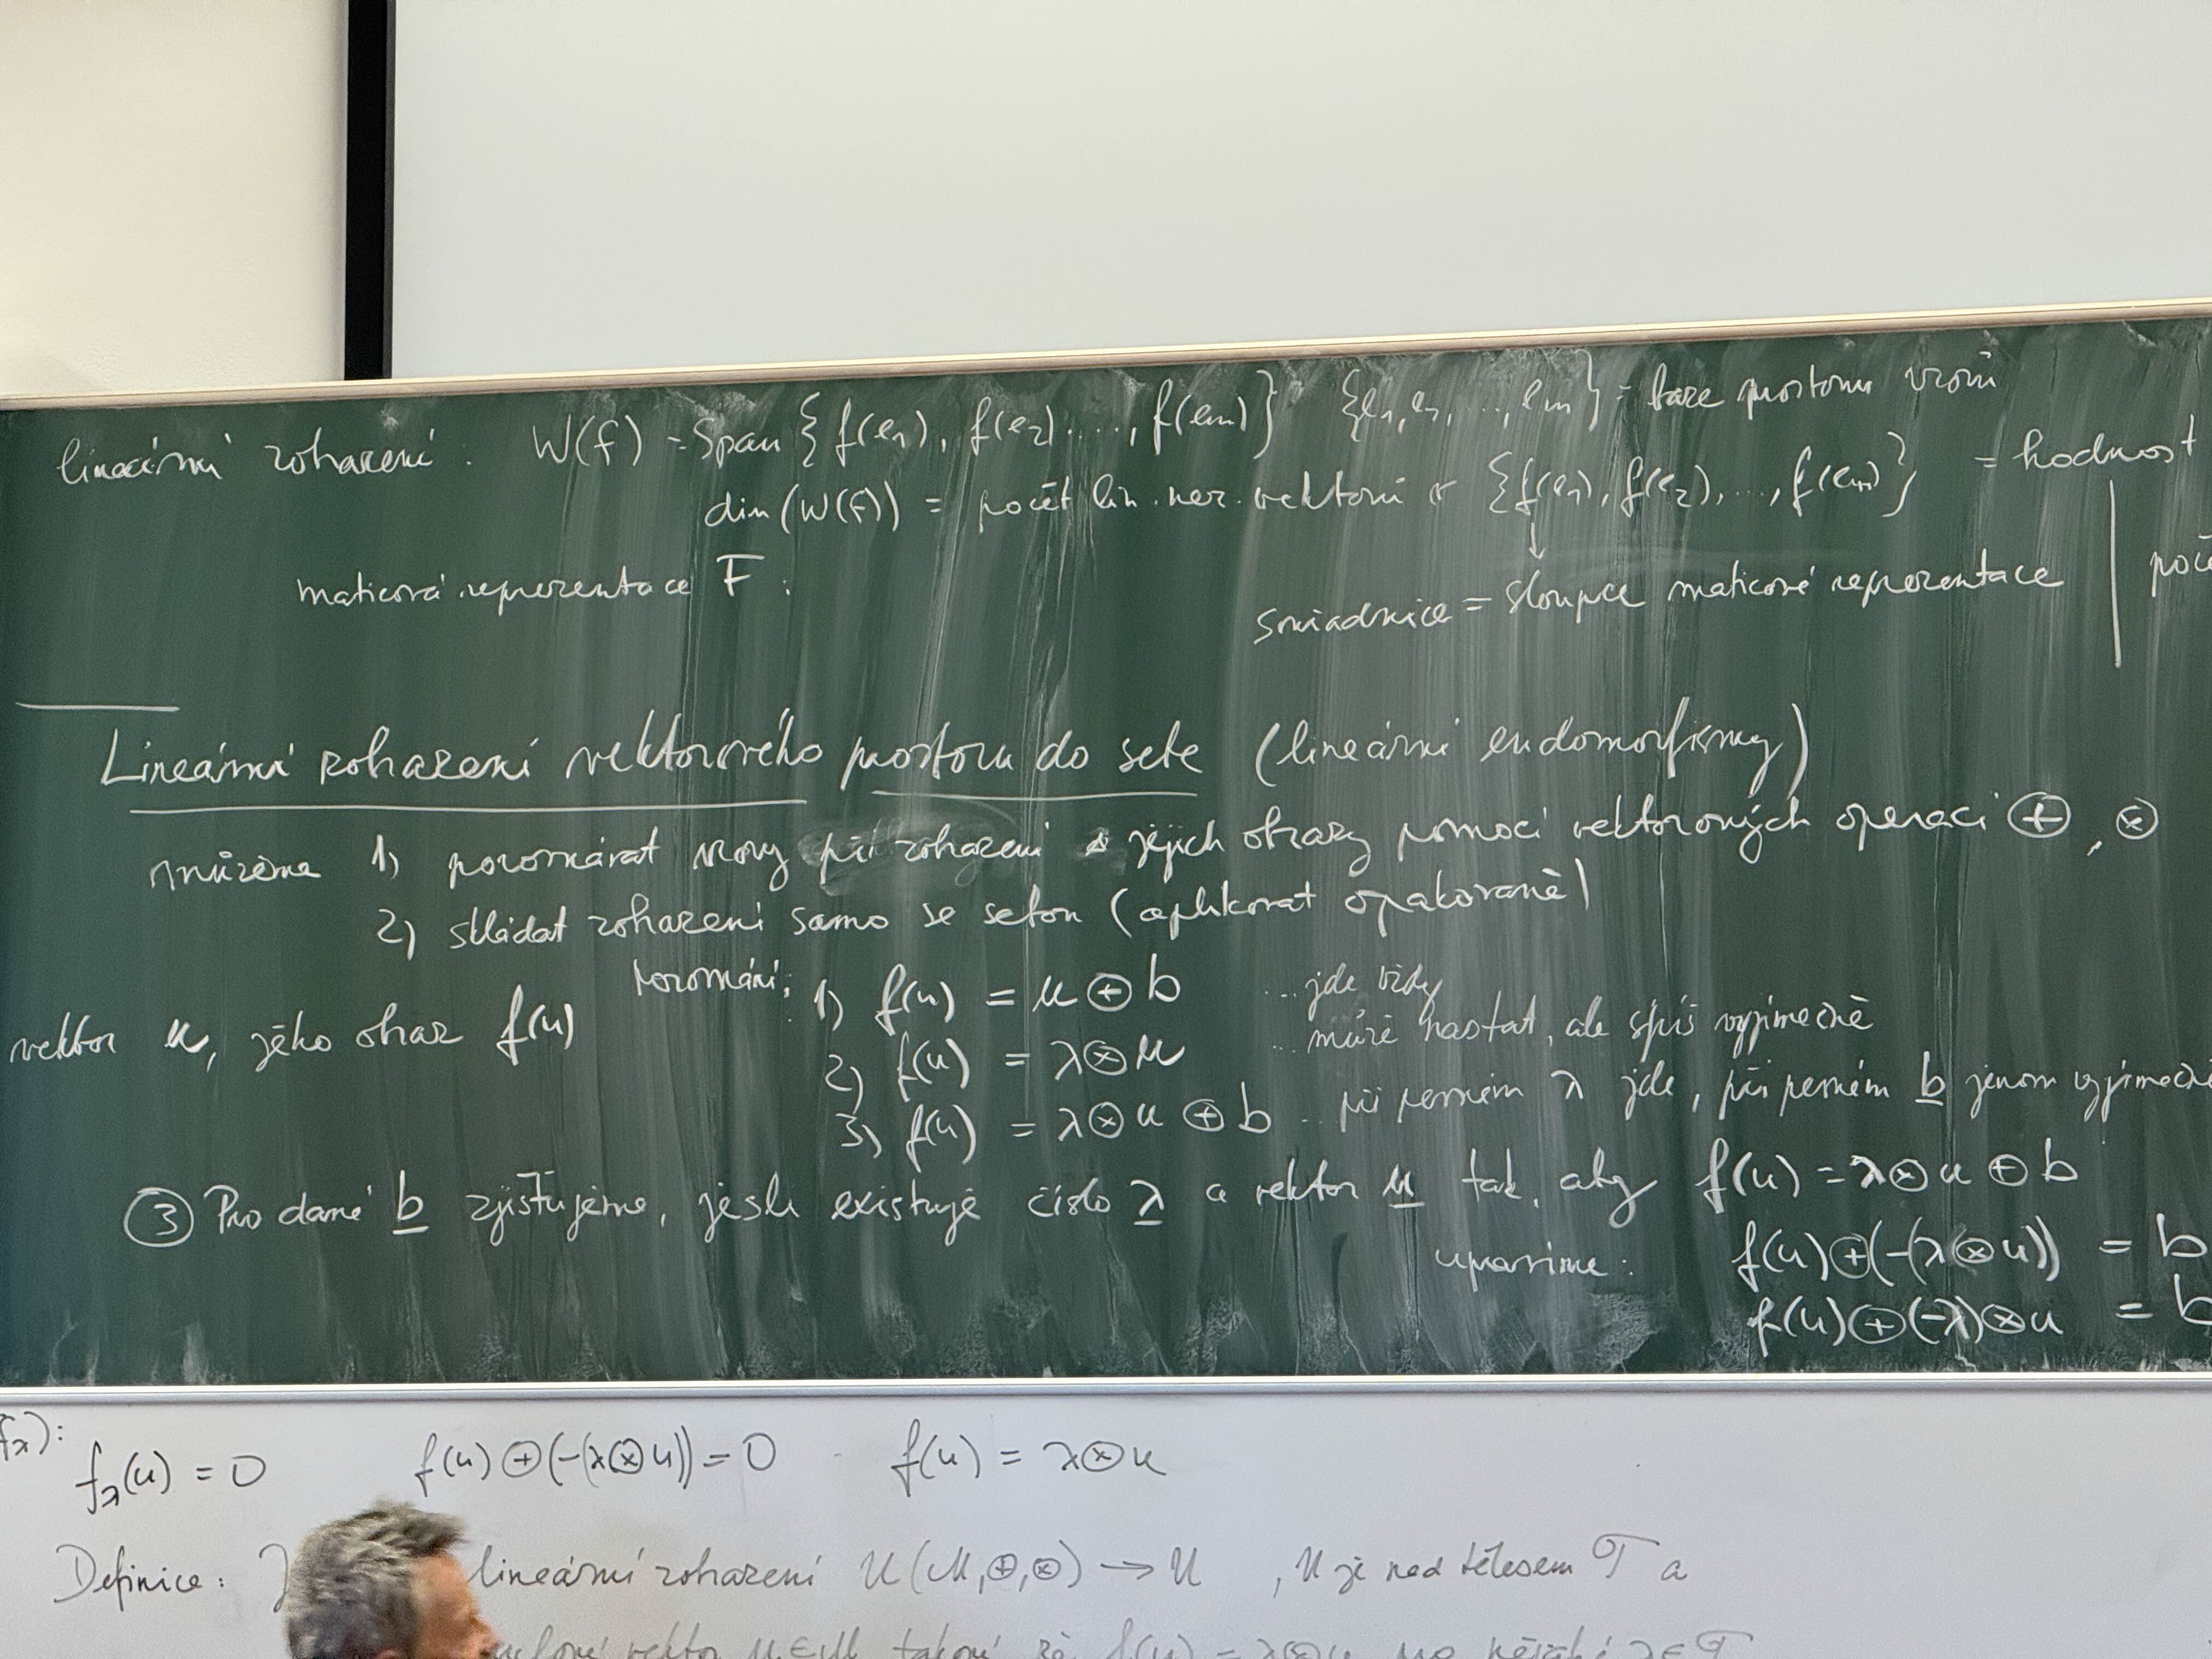 lineární zobrazení: W(f) = Span {f(e₁), f(e₂), ..., f(eₘ)} {e₁, e₂, ..., eₘ} = báze prostoru vzorů
dim(W(f)) = počet lin. nez. vektorů v {f(e₁), f(e₂), ..., f(eₘ)} = hodnost
maticová reprezentace F :
souřadnice = sloupce maticové reprezentace
Lineární zobrazení vektorového prostoru do sebe (lineární endomorfismy)
můžeme 1) porovnávat vzory při zobrazení a jejich obrazy pomocí vektorových operací ⊕, ⊗
2) skládat zobrazení samo se sebou (aplikovat opakovaně)
vektor u, jeho obraz f(u)
porovnání: 1) f(u) = u ⊕ b ... jde vždy
2) f(u) = λ⊗u ... může nastat, ale spíš výjimečně
3) f(u) = λ⊗u ⊕ b ... při pevném λ jde, při pevném b jenom
③ Pro dané b zjišťujeme, jestli existuje číslo λ a vektor u tak, aby f(u) = λ⊗u ⊕ b
upravíme: f(u)⊕(-(λ⊗u)) = b
f(u)⊕(-λ)⊗u = b
fλ(u) = 0 f(u)⊕(-(λ⊗u)) = 0 f(u) = λ⊗u
Definice: lineární zobrazení U(M,⊕,⊗) → U , U je nad tělesem T a